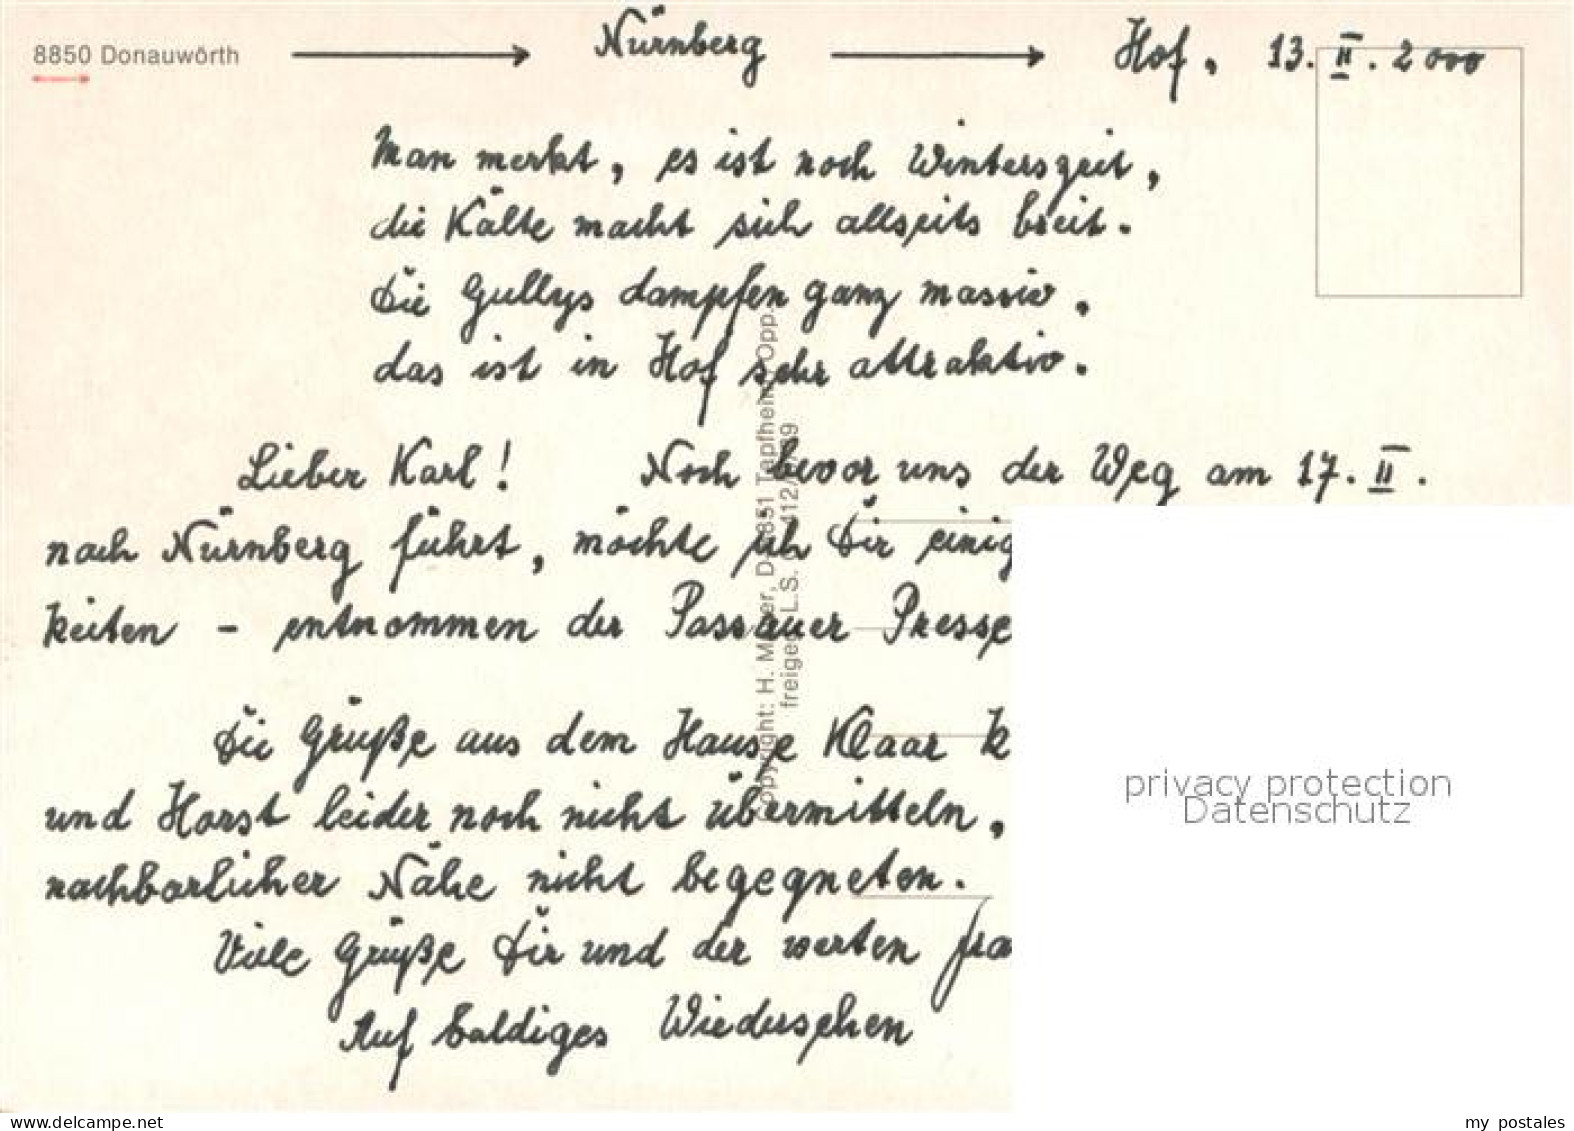 8850 Donauwörth → Nürnberg → Hof, 13. II. 2000
Man merkt, es ist noch Winterszeit,
die Kälte macht sich allseits breit.
Die Gullys dampfen ganz massiv,
das ist in Hof sehr attraktiv.
Lieber Karl! Noch bevor uns der Weg am 17. II.
nach Nürnberg führt, möchte ich Dir einig
keiten - entnommen der Passauer Presse
Die Grüße aus dem Hause Klaar k
und Horst leider noch nicht übermitteln,
nachbarlicher Nähe nicht begegneten.
Viele Grüße Dir und der werten Fra
Auf baldiges Wiedersehen
Copyright: H. M er, D-8851 Tapfheim Opp.
freigeg. L.S.
privacy protection
Datenschutz
www.delcampe.net
my postales